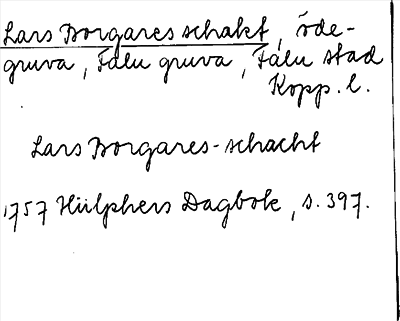 Lars Borgares schakt, öde-
gruva, Falu gruva, Falu stad
Kopp. l.
Lars Borgares-schacht
1757 Hülphers Dagbok, s. 397.